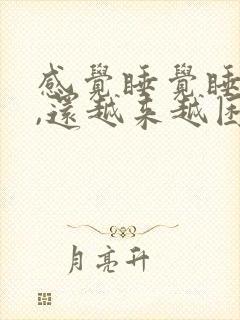 感覺睡覺睡
,還越来越困
月亮升